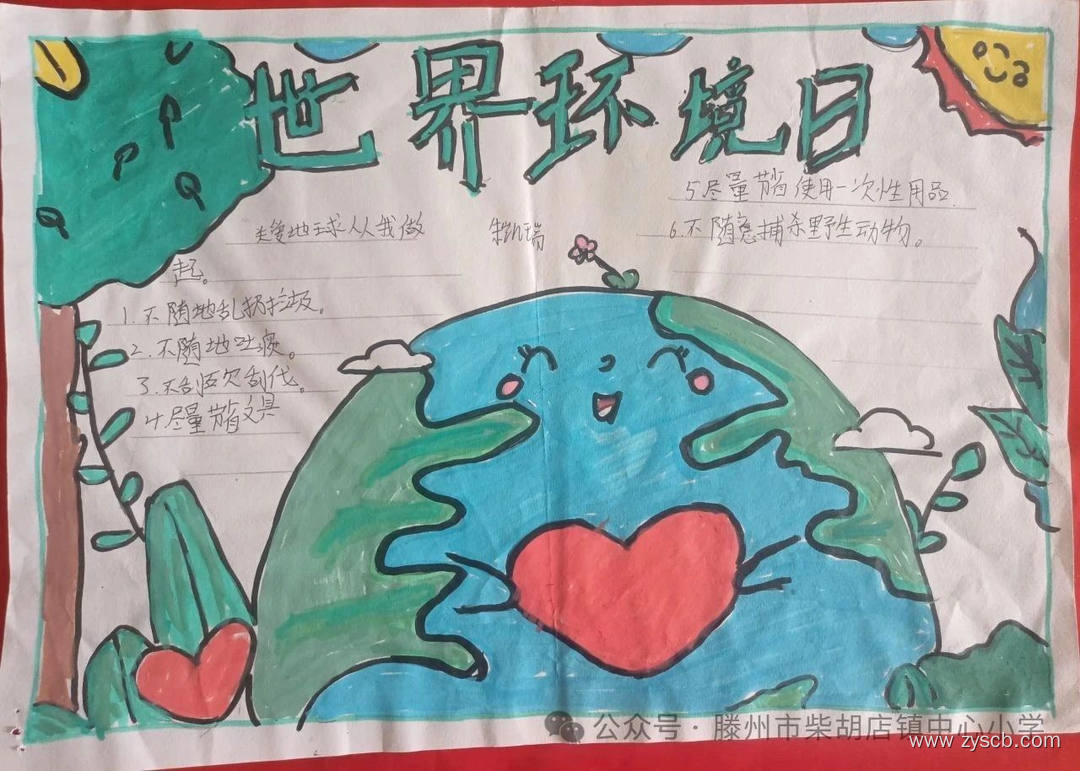 世界环境日
爱地球从我做
起。
朱凯瑞
1.不随地乱扔垃圾。
2.不随地吐痰。
3.不乱砍乱伐。
4.尽量节省文具
5.尽量节省使用一次性用品.
6.不随意捕杀野生动物。
公众号·滕州市柴胡店镇中心小学
www.zyscb.com